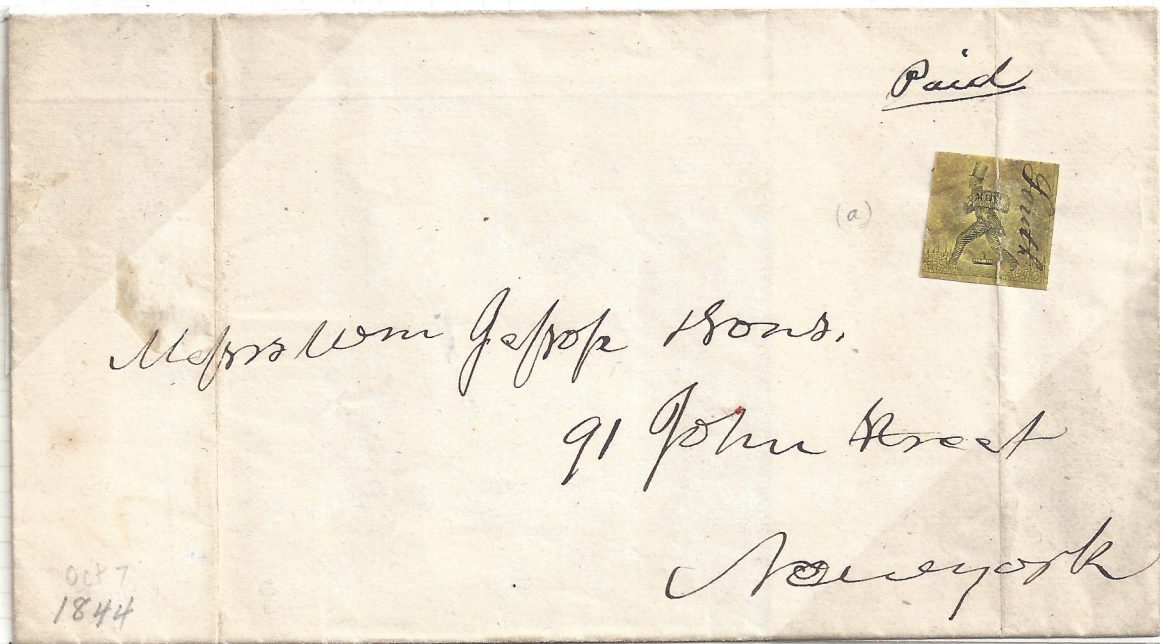 Paid
South
(a)
Messrs Wm Jessop & Sons.
91 John Street
New york
Oct 7
1844